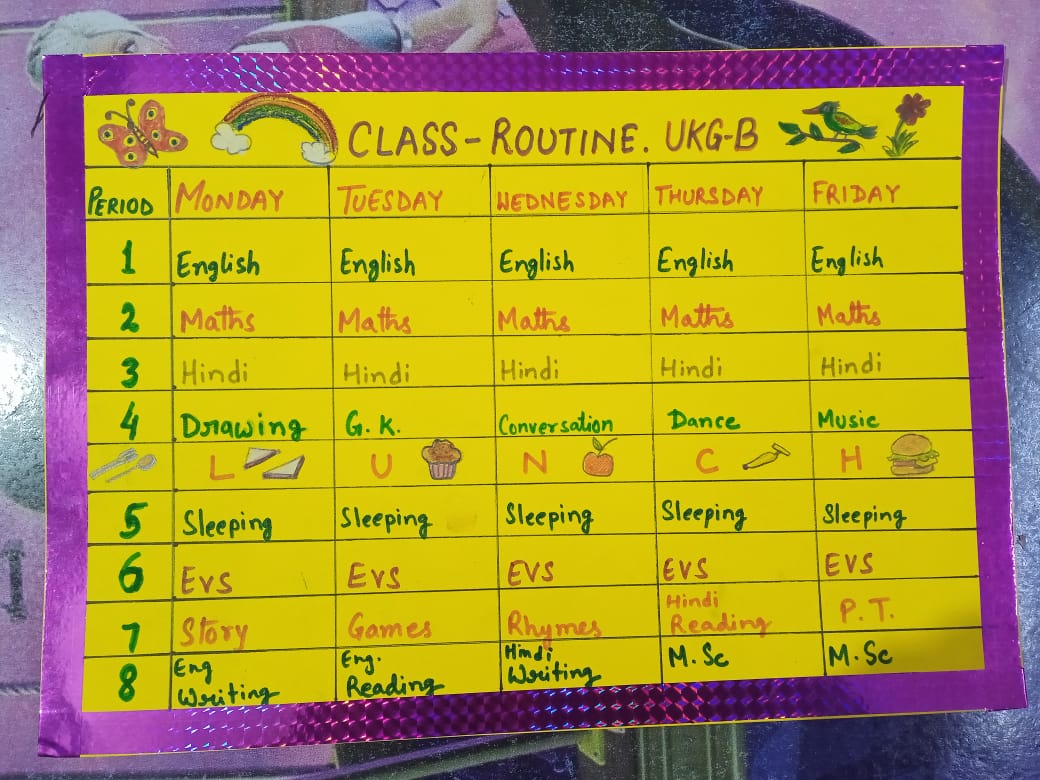 CLASS-ROUTINE. UKG-B
PERIOD MONDAY TUESDAY WEDNESDAY THURSDAY FRIDAY
1 English English English English English
2 Maths Maths Maths Maths Maths
3 Hindi Hindi Hindi Hindi Hindi
4 Drawing G.K. Conversation Dance Music
L U N C H
5 Sleeping Sleeping Sleeping Sleeping Sleeping
6 EVS EVS EVS EVS EVS
7 Story Games Rhymes Hindi Reading P.T.
8 Eng Writing Eng. Reading Hindi Writing M.Sc M.Sc